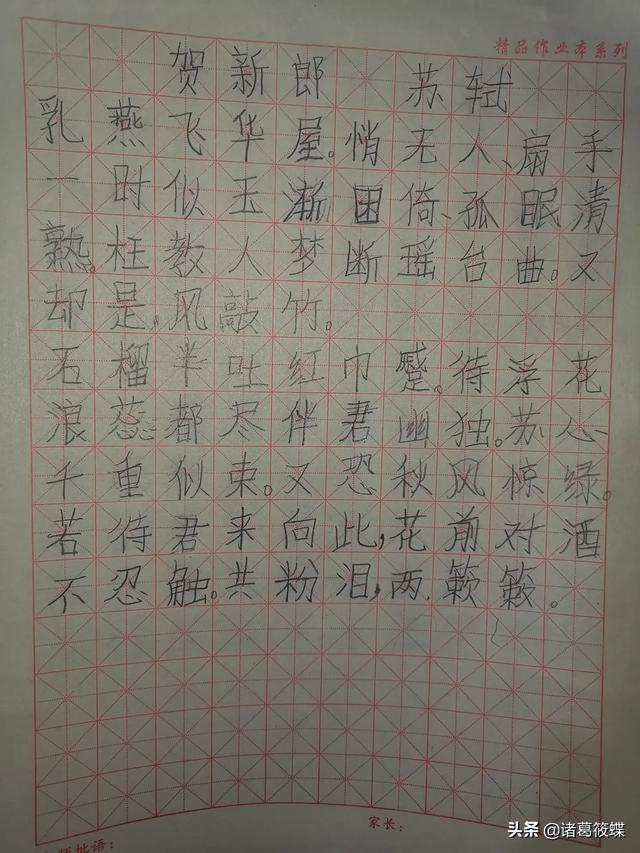 精品作业本系列
贺新郎 苏轼
乳燕飞华屋。悄无人、扇手
一时似玉渐困倚、孤眠清
熟。枉教人梦断瑶台曲。又
却是。风敲竹。
石榴半吐红巾蹙。待浮花
浪蕊都尽伴君幽独。苏心
千重似束。又恐秋风惊绿。
若待君来向此,花前对酒
不忍触。共粉泪,两.簌簌。
家长:
批语:
头条 @诸葛筱蝶